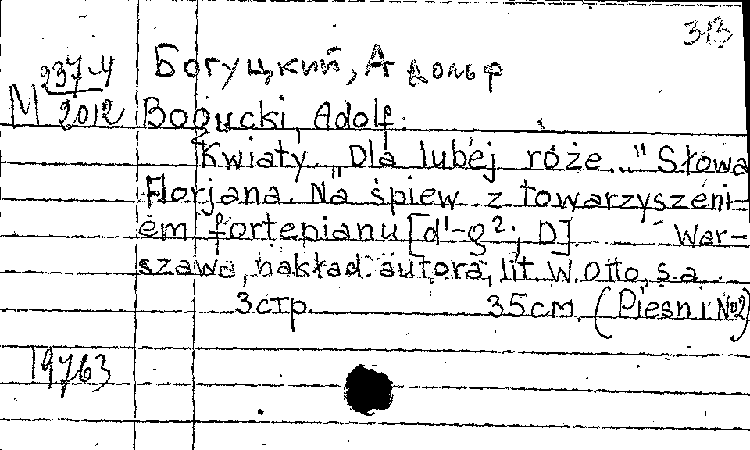 313
237-4
Богуцкий, Адольф
М 2012
Bogucki, Adolf.
Kwiaty "Dla lubej róże..." Słowa
Florjana. Na śpiew z towarzyszeni-
em fortepianu [d¹-g²; D] War-
szawa, nakład autora, lit. W. Otto, s.a.
3 стр. 35 см. (Piesni №2)
19763